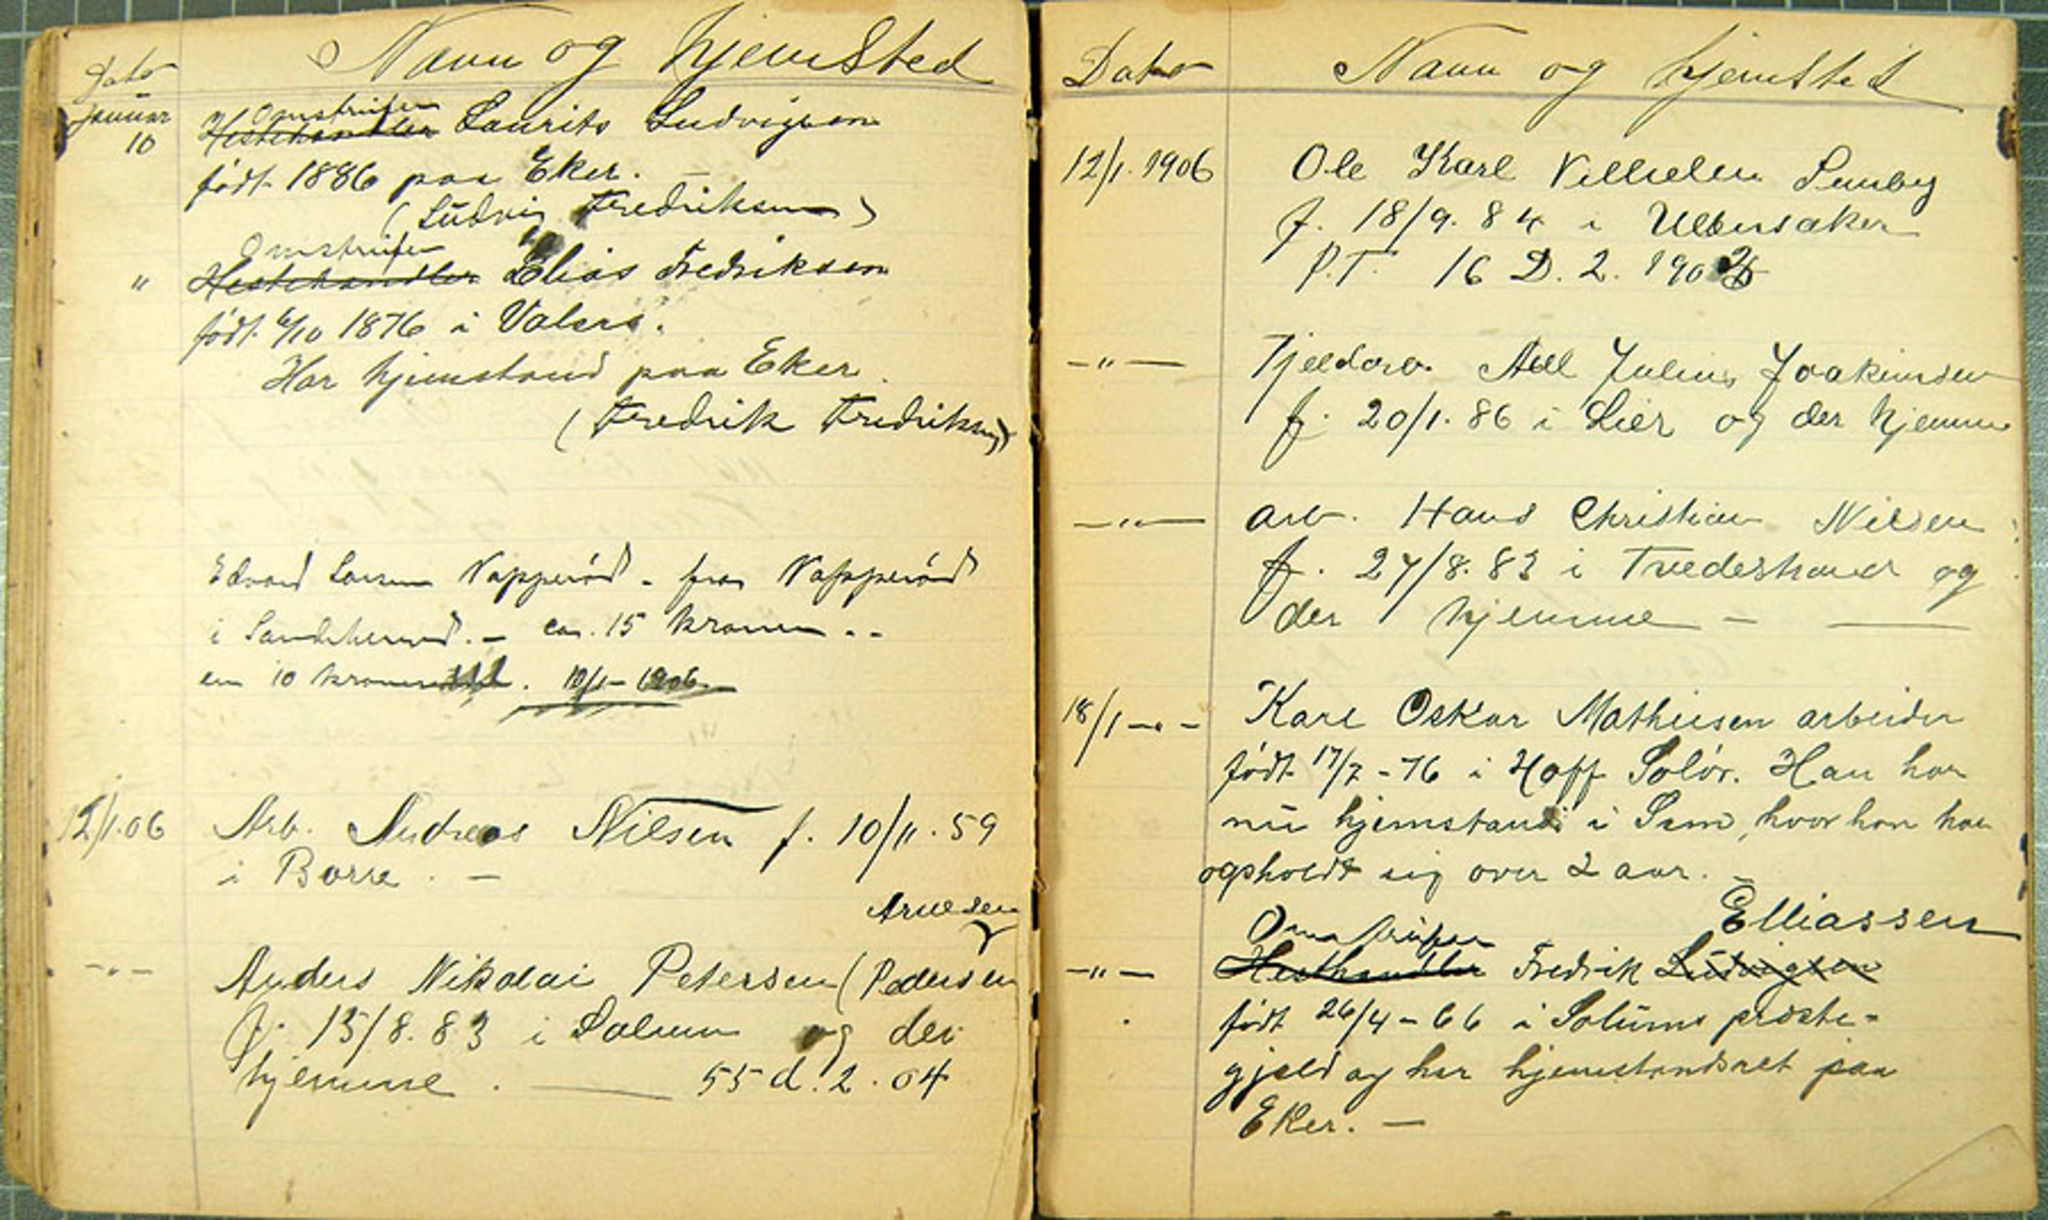 Dato Navn og hjemsted
Januar
10
Omstreifer
Hestehandler Laurits Ludvigsen
født 1886 paa Eker. -
(Ludvig Fredriksen)
Omstreifer
" Hestehandler Elias Fredriksen
født 6/10 1876 i Valers.
Har hjemstavn paa Eker.
(Fredrik Fredriksen)
Edvard Larsen Napperöd - fra Napperöd
i Sandeherred. - ca. 15 kroner. -
en 10 krone . 10/1 - 1906
12/1.06 Arb. Andreas Nilsen f. 10/11.59
i Borre. -
Arnesen
-"- Anders Nikolai Petersen (Pedersen
f. 13/8.83 i Solum og der
hjemme. — 55 d. 2. 04
Dato Navn og hjemsted
12/1.1906 Ole Karl Vilhelm Sundby
f. 18/9. 84 i Ullensaker
P.T. 16 D. 2. 190
-"- Axel Julius Joakimsen
f. 20/1. 86 i Lier og der hjemme
-"- arb. Hans Christian Nilsen
f. 27/8. 83 i Tvedestrand og
der hjemme - —
18/1 -"- Karl Oskar Mathisen arbeider
født 17/7 - 76 i Hoff Solör. Han har
nu hjemstavn i Sem, hvor han har
opholdt sig over 2 aar. -
Omstreifer Elliassen
-"- Hesthandler Fredrik Ludvigsen
født 26/4 - 66 i Solums præste-
gjæld og har hjemstandsret paa
Eker. -